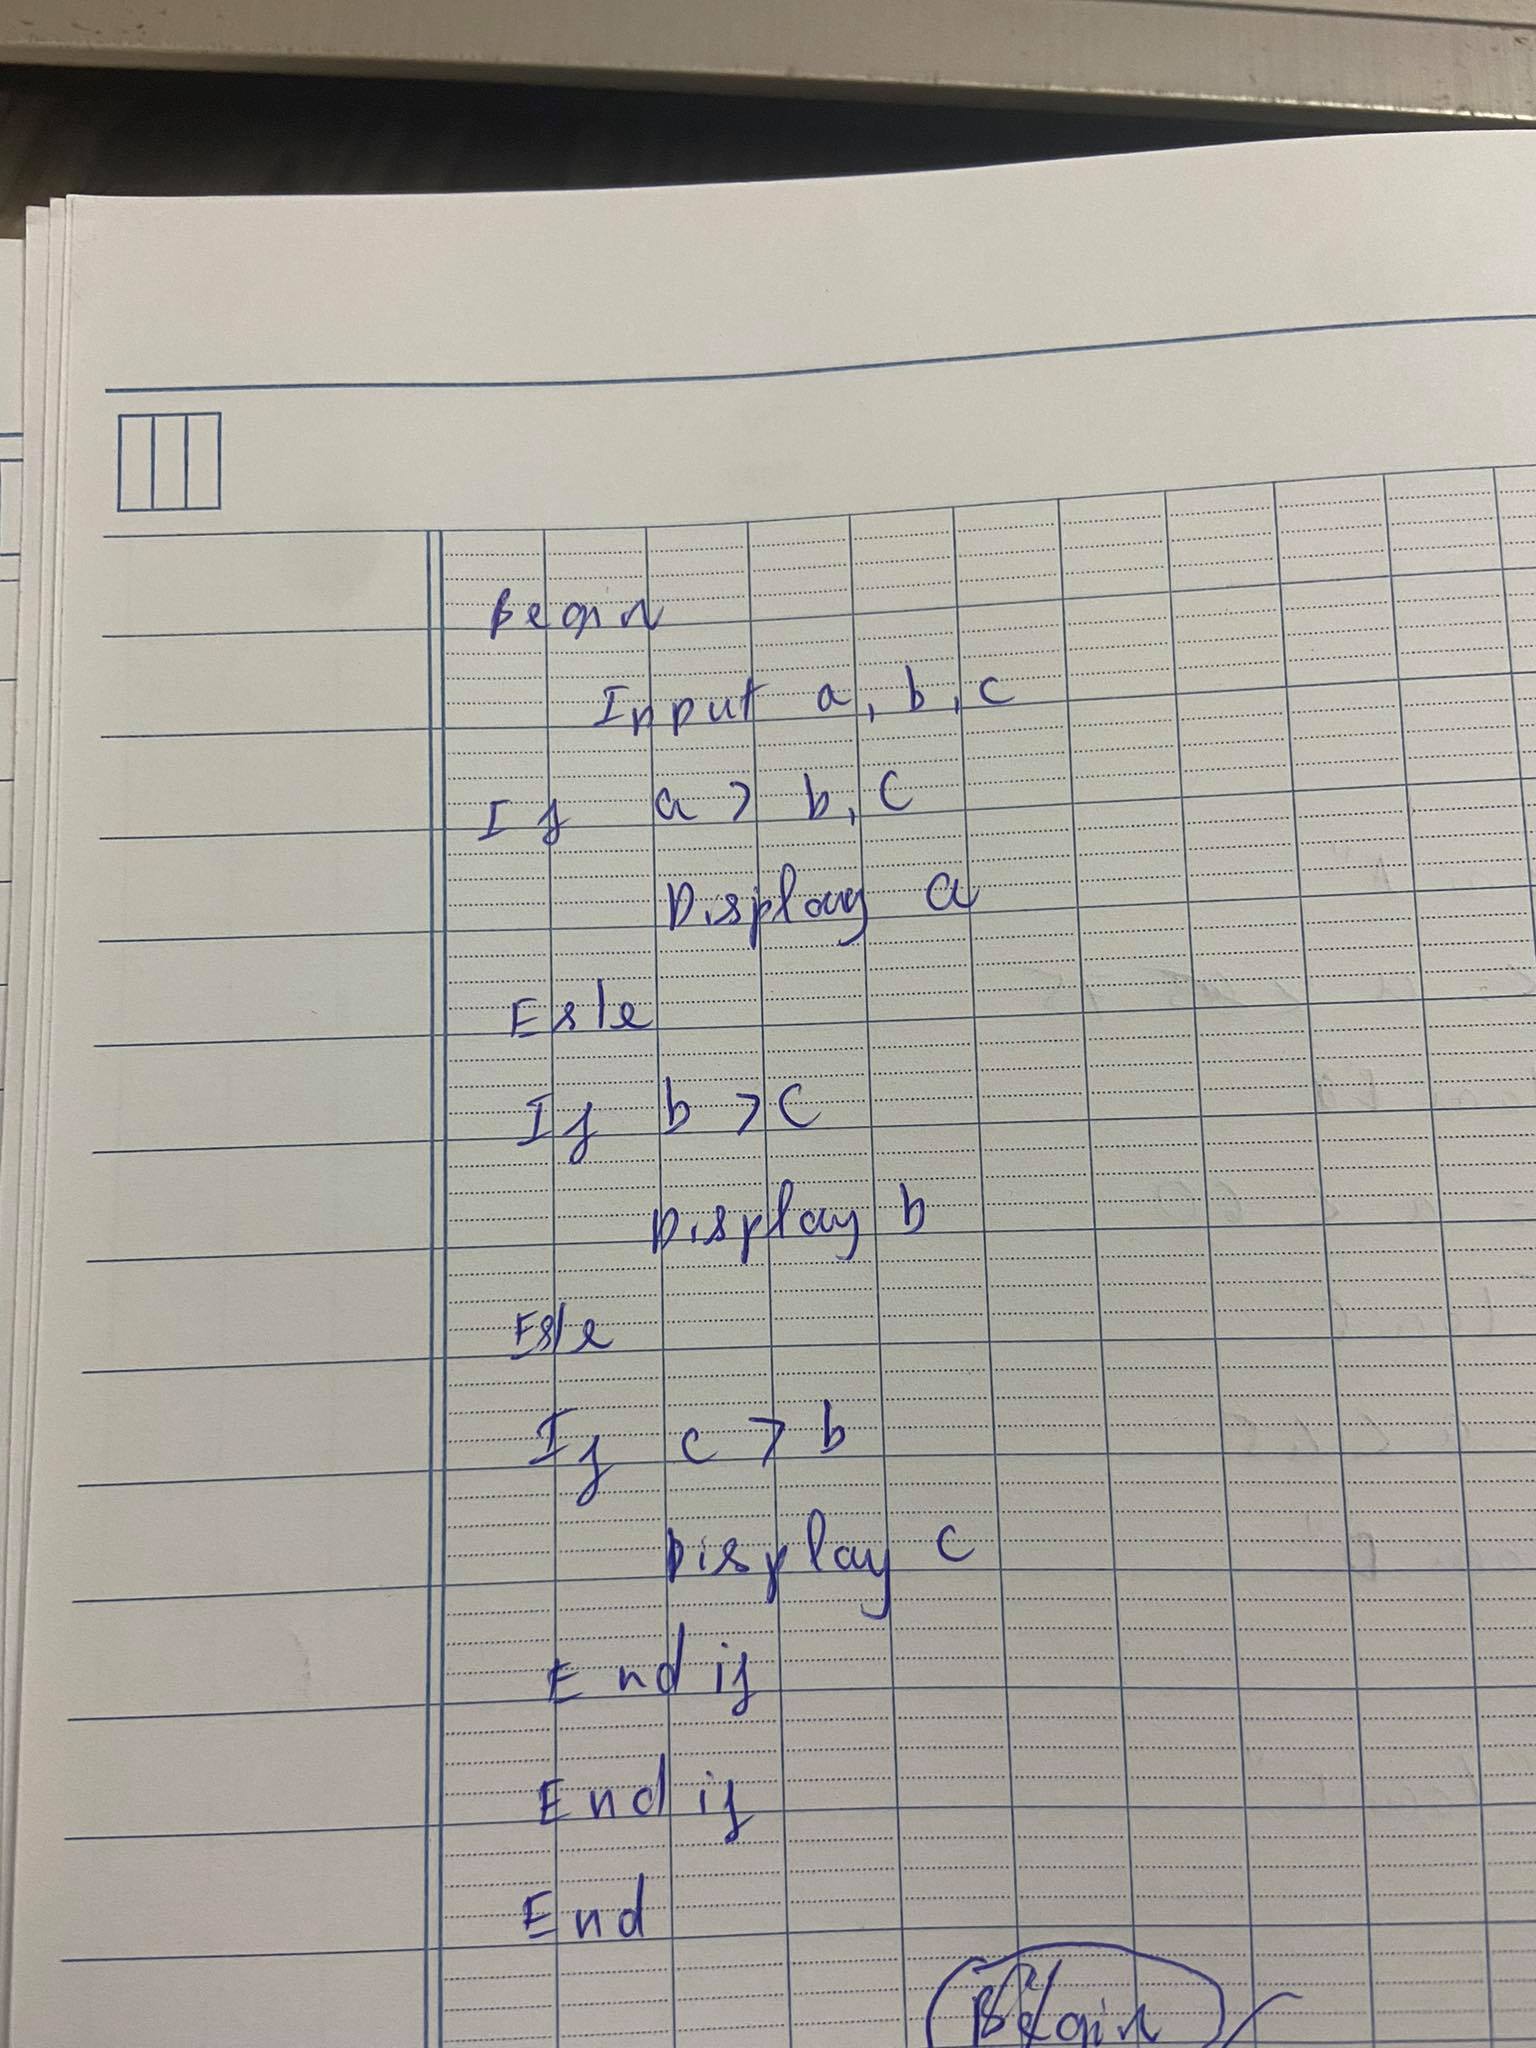 Begin
Input a, b, c
If a > b, c
Display a
Esle
If b > c
Display b
Esle
If c > b
Display c
End if
End if
End
Begin